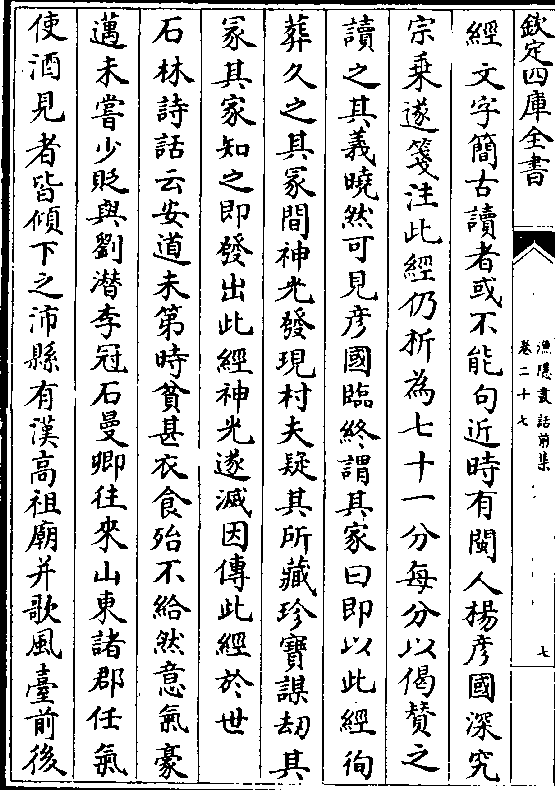 欽定四庫全書
漁隱叢話前集
卷二十七
七
經文字簡古讀者或不能句近時有閩人楊彦國深究
宗乗遂箋注此經仍析為七十一分每分以偈賛之
讀之其義曉然可見彦國臨終謂其家曰即以此經徇
葬久之其冢間神光發現村夫疑其所藏珍寶謀刼其
冢其家知之即發出此經神光遂滅因傳此經於世
石林詩話云安道未第時貧甚衣食殆不給然意氣豪
邁未嘗少貶與劉潛李冠石曼卿往來山東諸郡任氣
使酒見者皆傾下之沛縣有漢髙祖廟并歌風臺前後